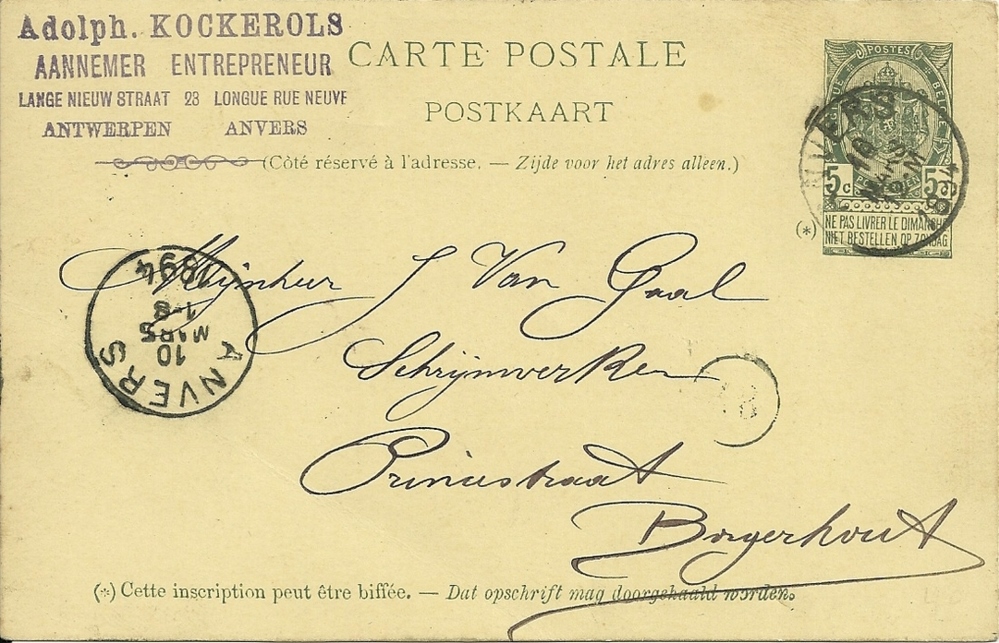 Adolph. KOCKEROLS
AANNEMER ENTREPRENEUR
LANGE NIEUW STRAAT 23 LONGUE RUE NEUVE
ANTWERPEN ANVERS
CARTE POSTALE
POSTKAART
(Côté réservé à l'adresse. — Zijde voor het adres alleen.)
POSTES
5c 5c
(*) NE PAS LIVRER LE DIMANCHE
NIET BESTELLEN OP ZONDAG
ANVERS
10
MARS
1894
ANVERS
10
MARS
1-8
1894
Mijnheer J Van Gaal
Schrijnwerker
Princestraat
Borgerhout
(*) Cette inscription peut être biffée. — Dat opschrift mag doorgehaald worden.